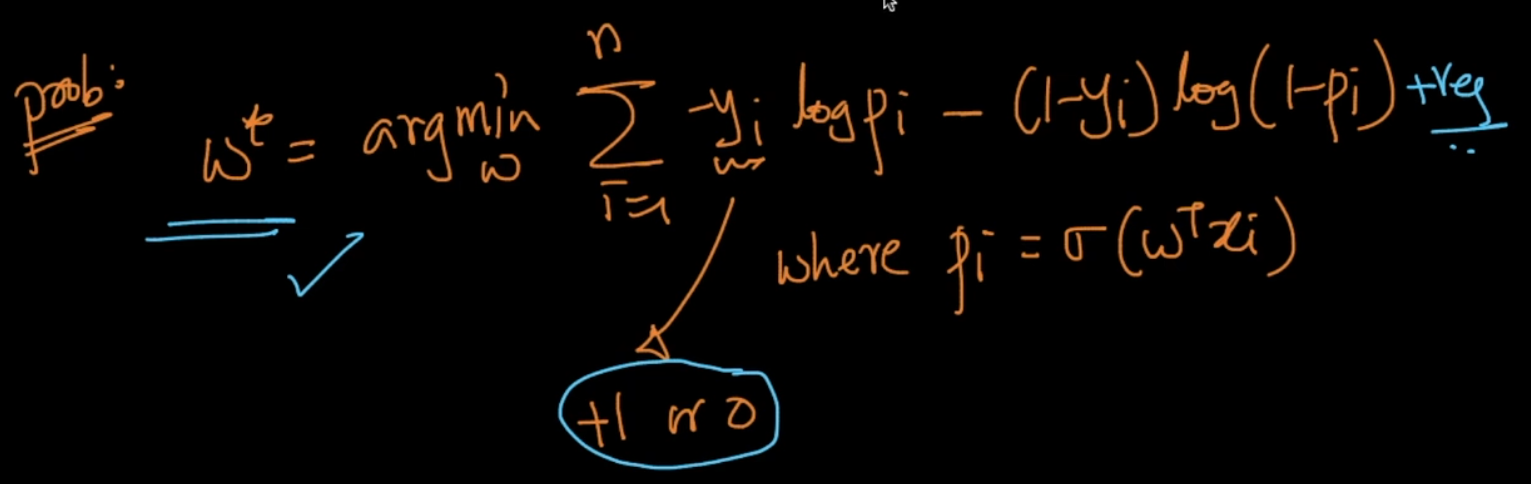 prob:
w* = argmin_w Σ_{i=1}^{n} -y_i log p_i - (1-y_i) log(1-p_i) + reg
where p_i = σ(wᵀx_i)
+1 or 0